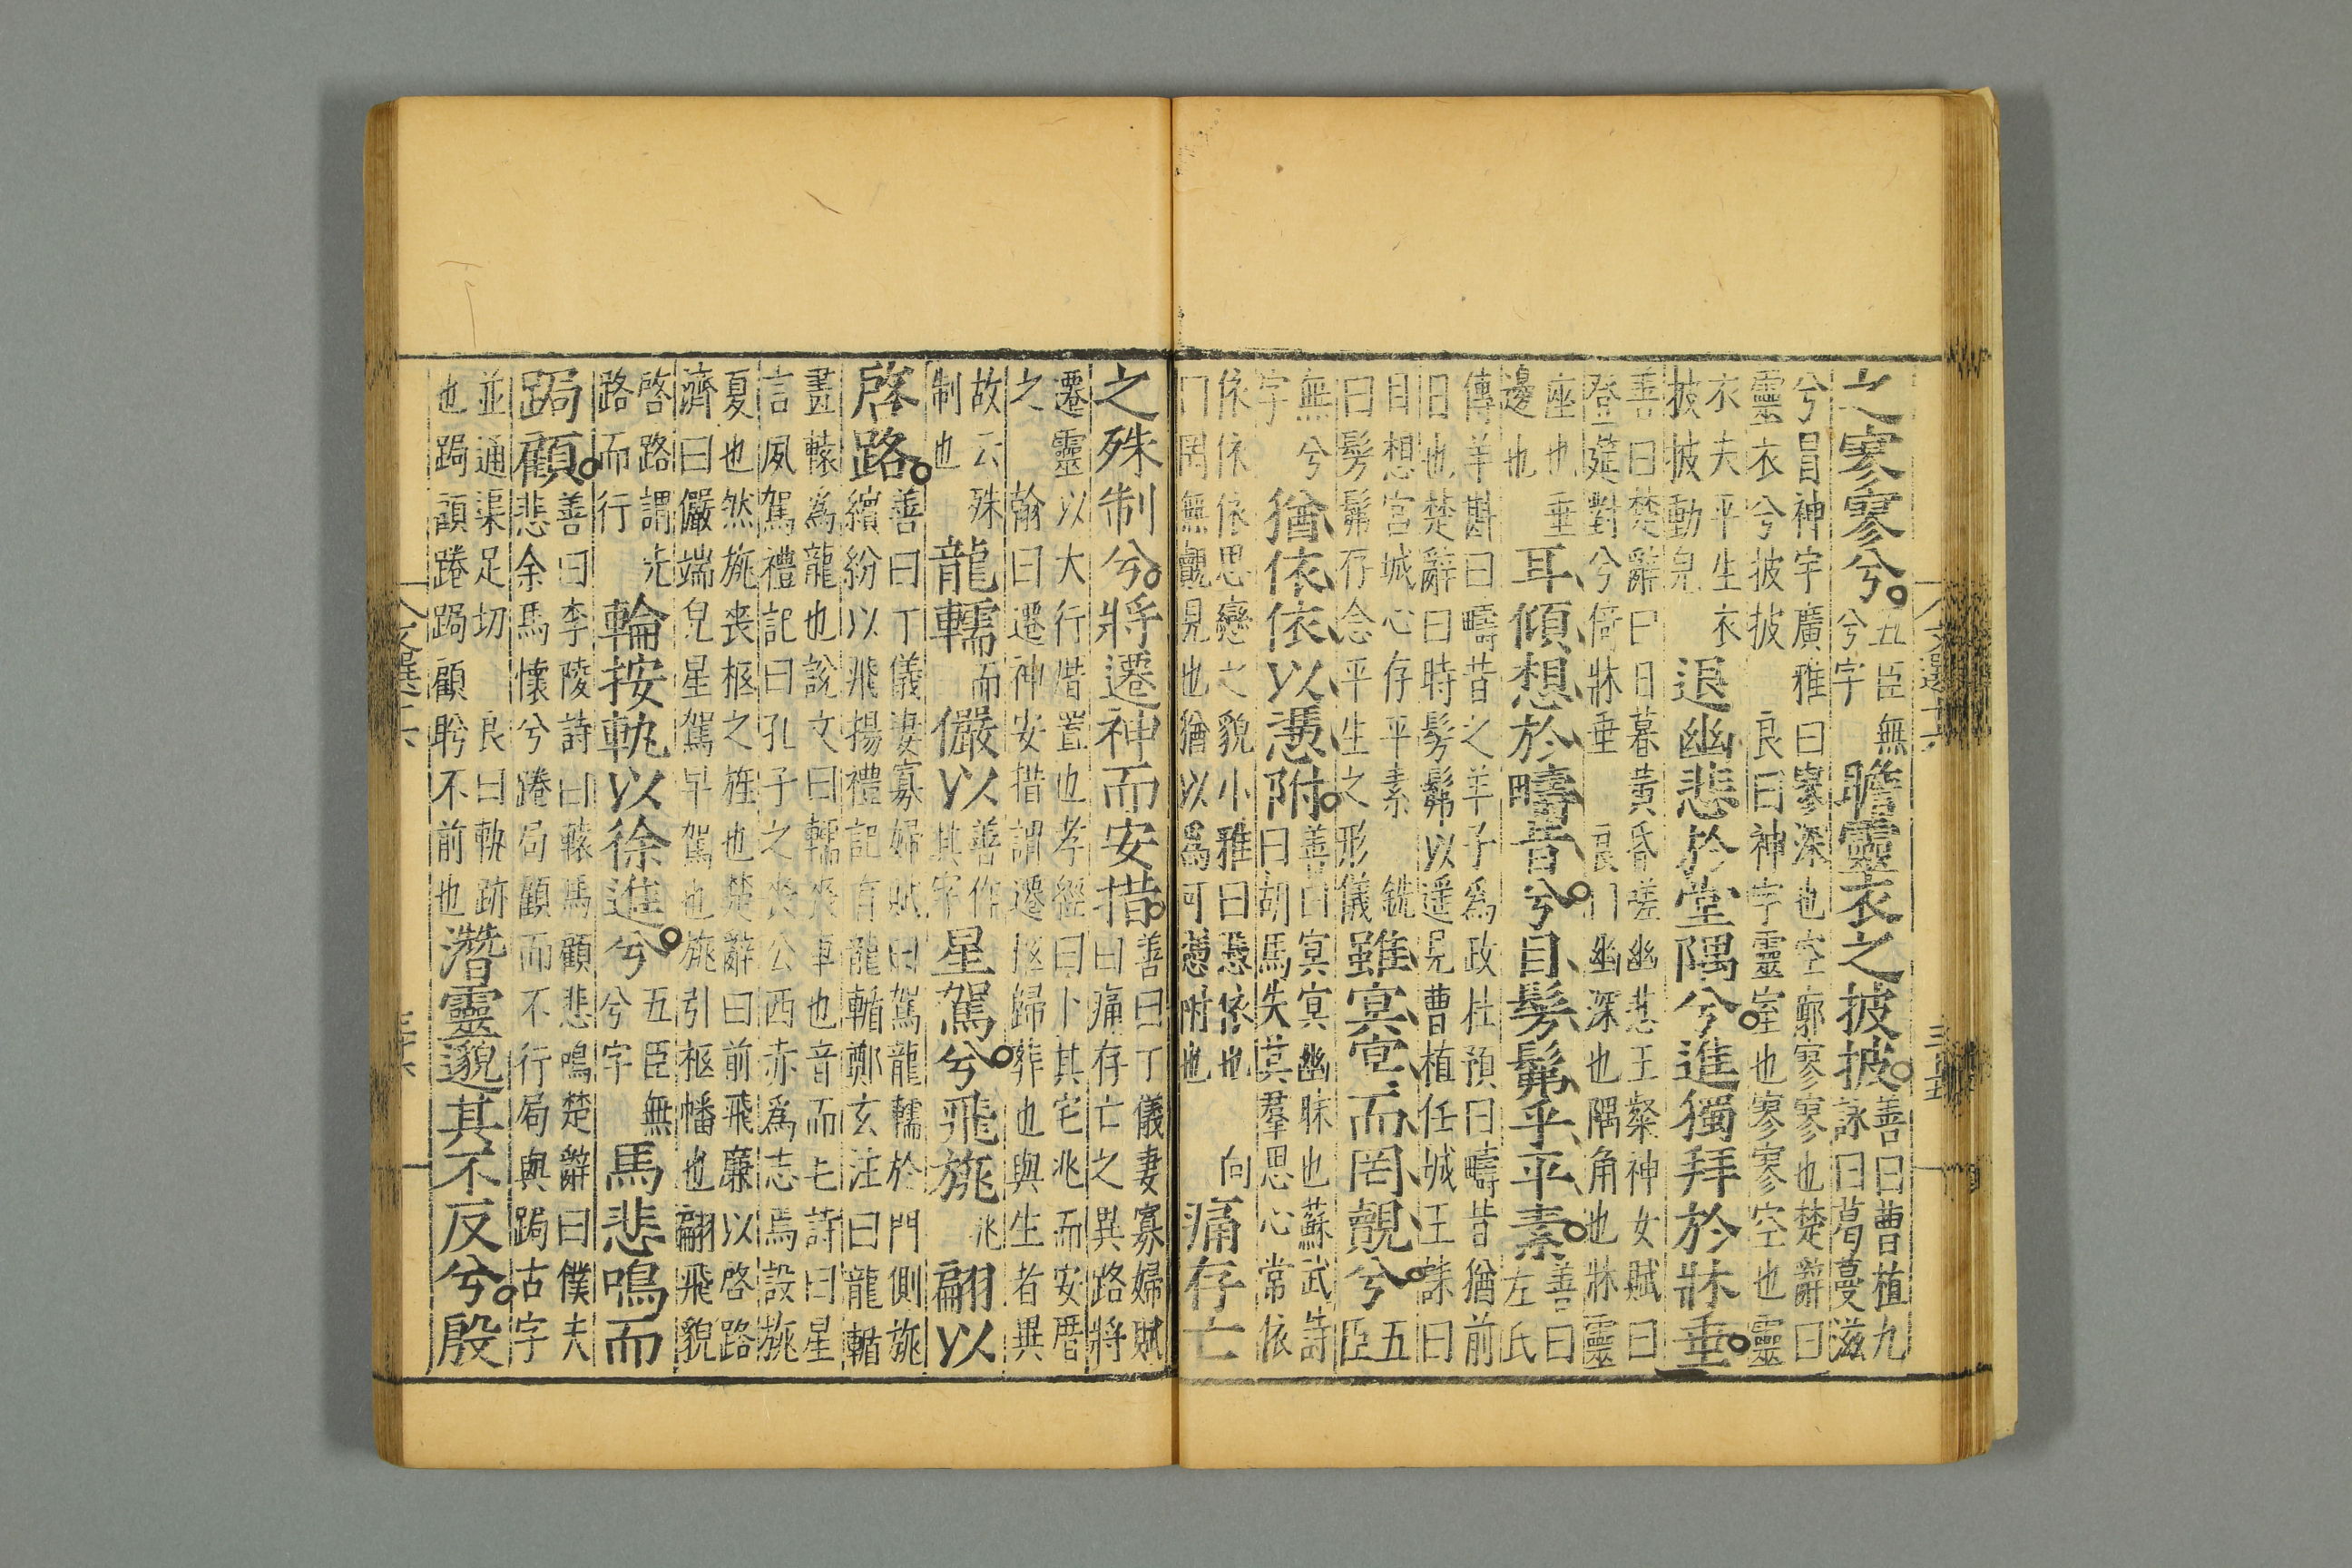 之寥寥兮五臣無兮字瞻靈衣之披披善曰曹植九詠曰葛蔓滋
兮冒神宇廣雅曰寥深也空廓寥寥也楚辭曰靈衣兮披披良曰神宇靈室也寥寥空也靈
衣夫平生衣披披動皃退幽悲於堂隅兮進獨拜於牀垂
善曰楚辭曰日暮黃昏嗟幽悲王粲神女賦曰登筵對兮倚牀垂良曰幽深也隅角也牀靈
座也垂邊也耳傾想於疇昔兮目髣髴乎平素善曰左氏
傳羊斟曰疇昔之羊子為政杜預曰疇昔猶前日也楚辭曰時髣髴以遥見曹植任城王誄曰
目想宮城心存平素銑曰髣髴存念平生之形儀雖冥冥而罔覿兮五臣
無兮字猶依依以憑附善曰冥冥幽昧也蘇武詩曰胡馬失其羣思心常依
依依依思戀之貌小雅曰憑依也向曰罔無覿見也猶以為可憑附也痛存亡
之殊制兮將遷神而安措善曰丁儀妻寡婦賦曰痛存亡之異路將
遷靈以大行潜置也孝經曰卜其宅兆而安厝之翰曰遷神安措謂遷柩歸葬也與生者異
故云殊制也龍轜而儼以善作其字星駕兮飛旐兆翩以
啓路善曰丁儀妻寡婦賦曰駕龍轜於門側旐繽紛以飛揚禮記有龍輴鄭玄注曰龍輴
畫轅為龍也說文曰轜喪車也音而毛詩曰星言夙駕禮記曰孔子之喪公西赤為志焉設旐
夏也然旐喪柩之旌也楚辭曰前飛廉以啓路濟曰儼端皃星駕早駕也旐引柩幡也翩飛貌
啓路謂先路而行輪按軌以徐進兮五臣無兮字馬悲鳴而
跼顧善曰李陵詩曰轅馬顧悲鳴楚辭曰僕夫悲余馬懷兮踡局顧而不行局與跼古字
並通渠足切良曰軌跡也跼顧踡跼顧眄不前也潛靈邈其不反兮殷